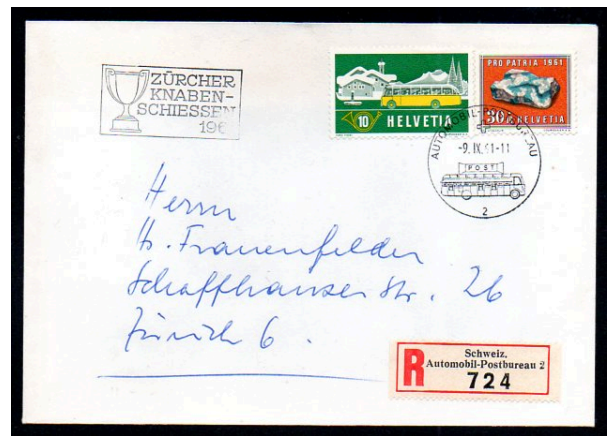 ZÜRCHER
KNABEN-
SCHIESSEN
196
10 HELVETIA
PRO PATRIA 1961
HELVETIA
AUTOMOBIL-POSTBUREAU
-9.IX.61-11
POST
2
Herrn
H. Frauenfelder
Schaffhauser Str. 26
Zürich 6.
R
Schweiz.
Automobil-Postbureau 2
724